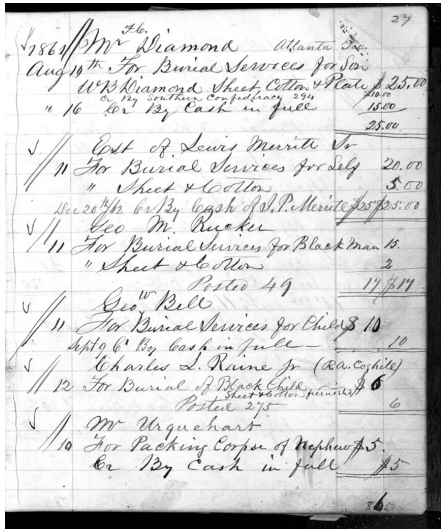 27
F.C.
1861 Mr Diamond Atlanta Ga
Aug 19th For Burial Services for Son
W B Diamond Sheet, Cotton & Plate $25.00
Cr By Southern Confederacy 294 $10.00
" 16 Cr By Cash in full 15.00
25.00
Est of Lewis Merritt Sr
11 For Burial Services for Self 20.00
" Sheet & Cotton 5.00
Dec 20th/62 Cr By Cash of J.P. Merritt $25 $25.00
Geo M. Rucker
11 For Burial Services for Black Man 15.
" Sheet & Cotton 2
Posted 49 17 $17
Geo W Bell
11 For Burial Services for Child $10
Sept 9 Cr By Cash in full 10
Charles S. Raine Jr (R.A. Coghile)
12 For Burial of Black Child $6
Sheet & Cotton furnished
Posted 275 6
Mr Urquehart
10 For Packing Corpse of Nephew $5
Cr By Cash in full $5